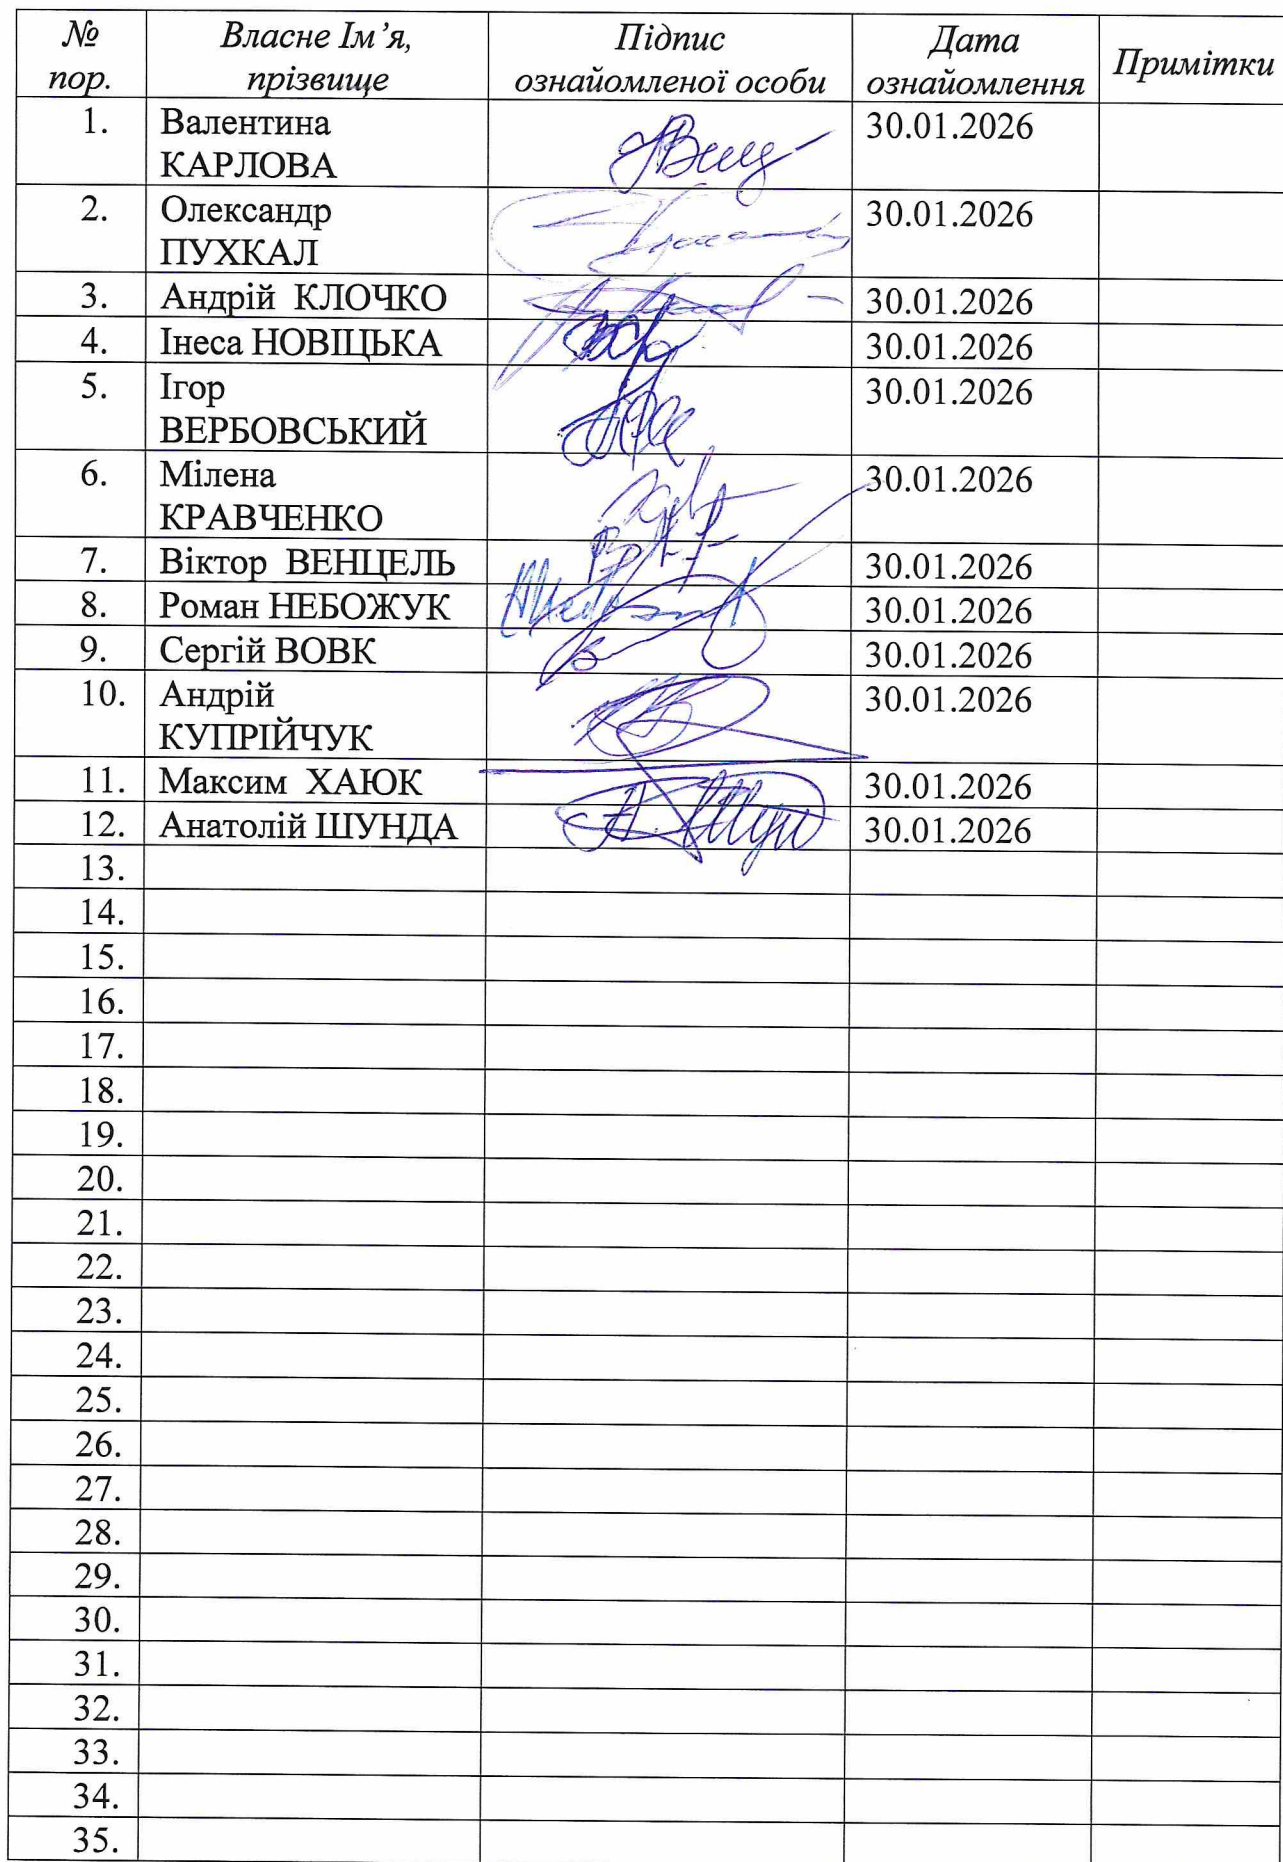 № пор. Власне Ім’я, прізвище Підпис ознайомленої особи Дата ознайомлення Примітки
1. Валентина КАРЛОВА 30.01.2026
2. Олександр ПУХКАЛ 30.01.2026
3. Андрій КЛОЧКО 30.01.2026
4. Інеса НОВІЦЬКА 30.01.2026
5. Ігор ВЕРБОВСЬКИЙ 30.01.2026
6. Мілена КРАВЧЕНКО 30.01.2026
7. Віктор ВЕНЦЕЛЬ 30.01.2026
8. Роман НЕБОЖУК 30.01.2026
9. Сергій ВОВК 30.01.2026
10. Андрій КУПРІЙЧУК 30.01.2026
11. Максим ХАЮК 30.01.2026
12. Анатолій ШУНДА 30.01.2026
13.
14.
15.
16.
17.
18.
19.
20.
21.
22.
23.
24.
25.
26.
27.
28.
29.
30.
31.
32.
33.
34.
35.